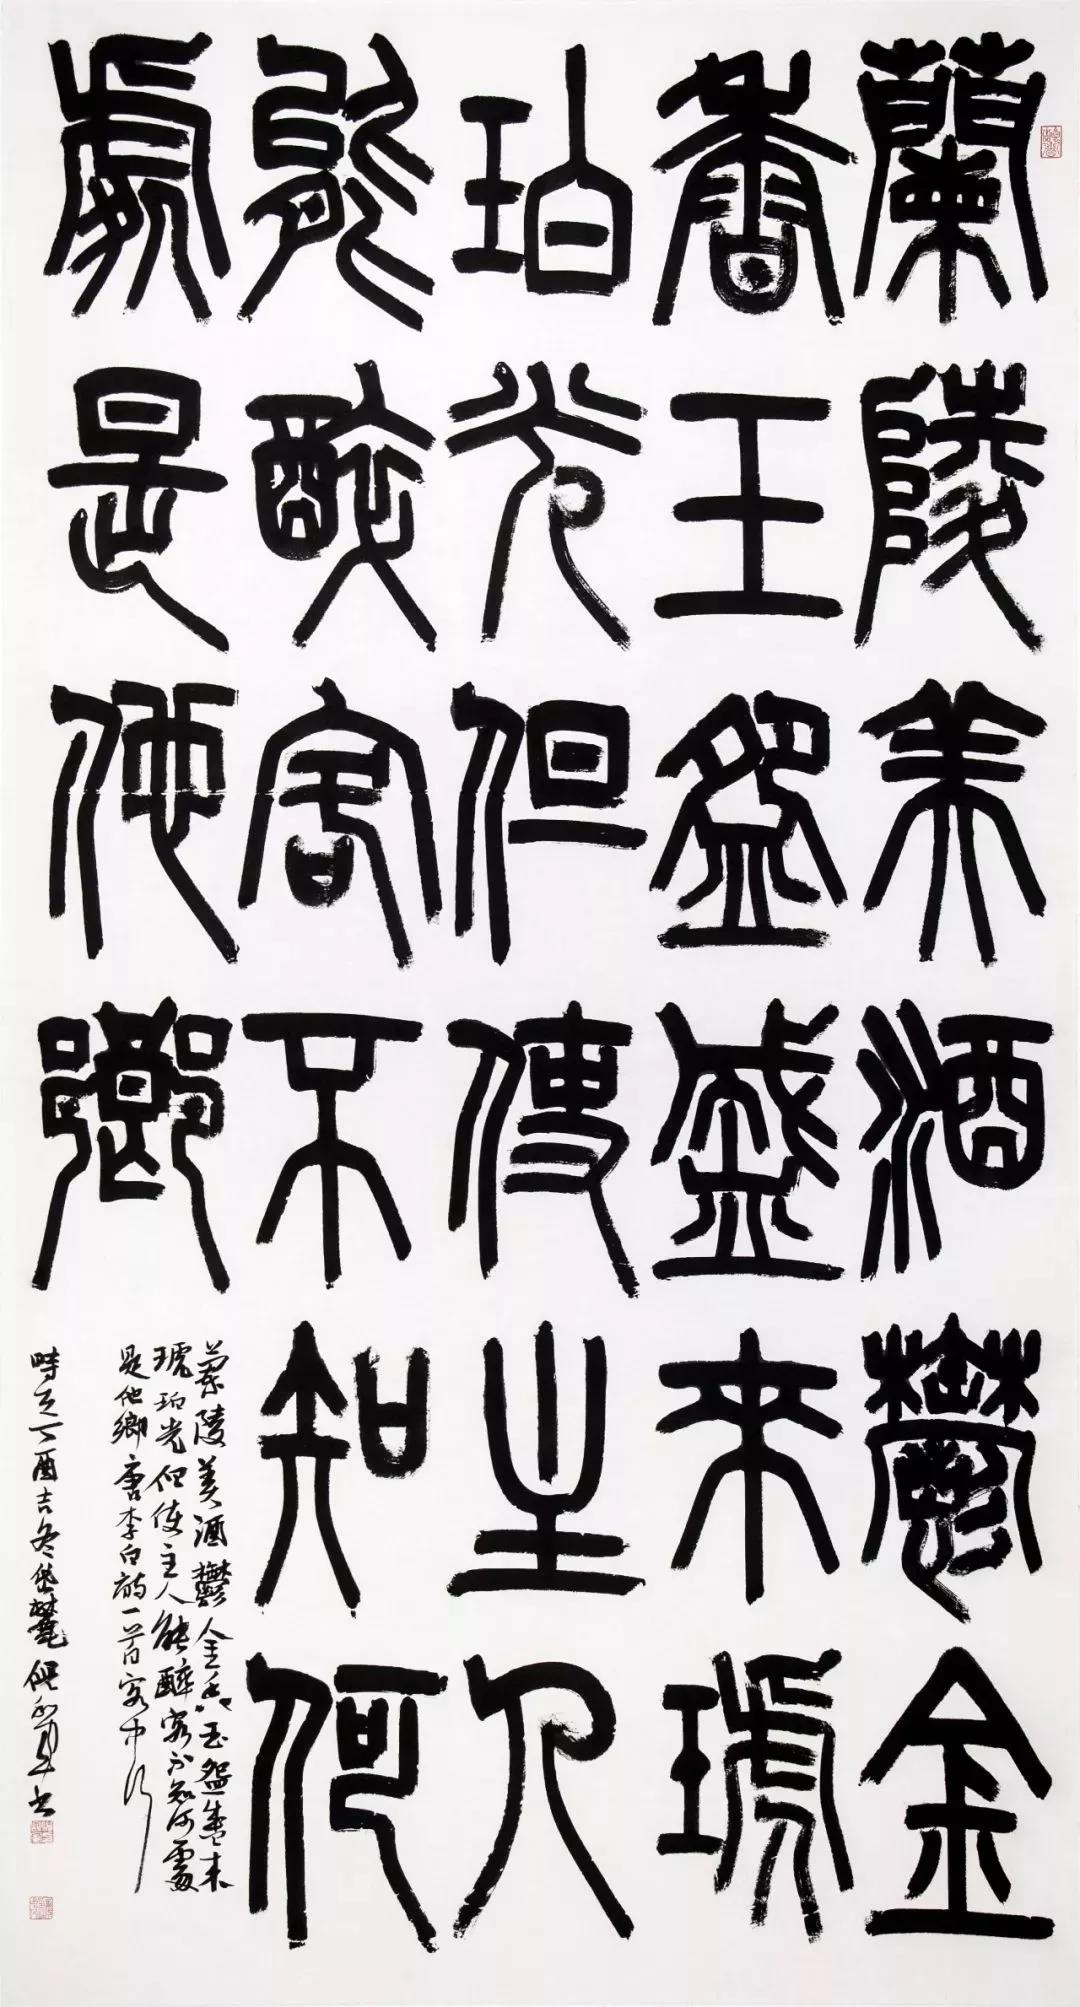 蘭陵美酒鬱金
香玉盌盛來琥
珀光但使主人
能醉客不知何
處是他鄉
蘭陵美酒鬱金香玉盌盛来
琥珀光但使主人能醉客不知何處
是他鄉唐李白诗一首客中行
時在丁酉吉冬岱麓倪书